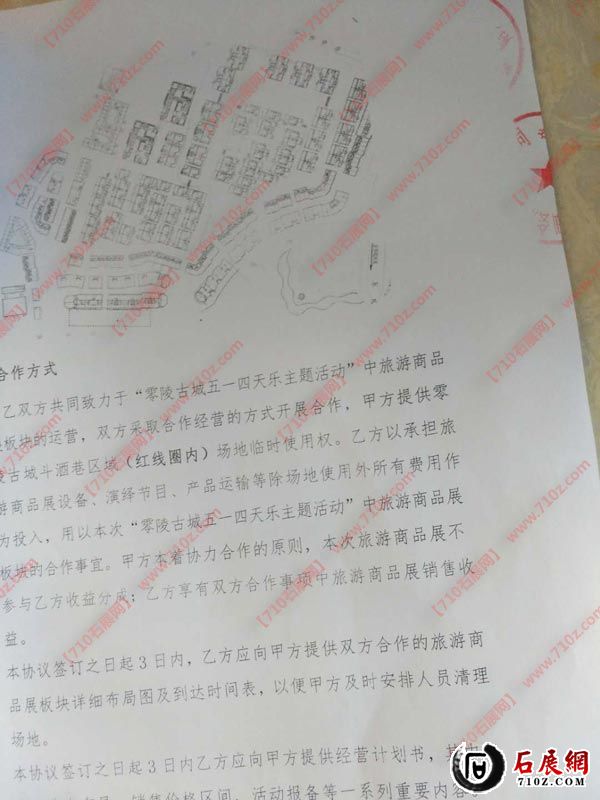 合作方式
乙双方共同致力于“零陵古城五一四天乐主题活动”中旅游商品
板块的运营，双方采取合作经营的方式开展合作，甲方提供零
陵古城斗酒巷区域（红线圈内）场地临时使用权。乙方以承担旅
游商品展设备、演绎节目、产品运输等除场地使用外所有费用作
为投入，用以本次“零陵古城五一四天乐主题活动”中旅游商品展
板块的合作事宜。甲方本着协力合作的原则，本次旅游商品展不
参与乙方收益分成；乙方享有双方合作事项中旅游商品展销售收
益。
本协议签订之日起3日内，乙方应向甲方提供双方合作的旅游商
品展板块详细布局图及到达时间表，以便甲方及时安排人员清理
场地。
本协议签订之日起3日内乙方应向甲方提供经营计划书，其中
销售价格区间、活动报备等一系列重要内容。
【710石展网】www.710z.com
石展網
710Z.COM